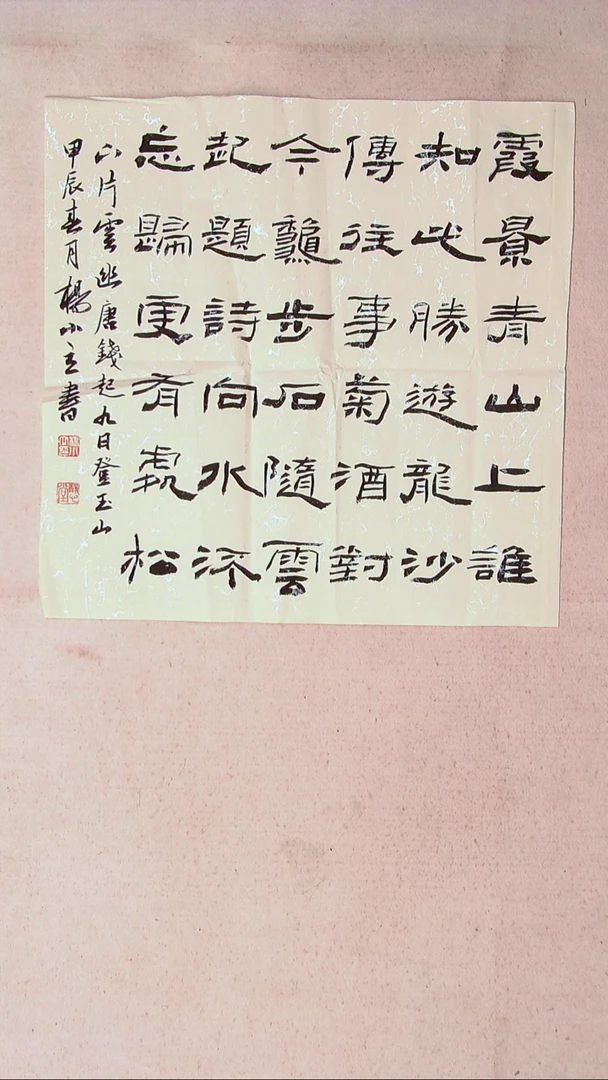 霞景青山上誰
知此勝遊龍沙
傳往事菊酒對
今龝步石隨雲
起題詩向水流
忘歸更有處松
下片雲幽唐錢起九日登玉山
甲辰春月楊小立書